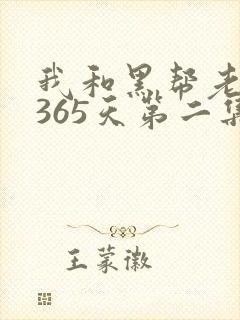 我和黑帮老
365天第二集
王蒙徽